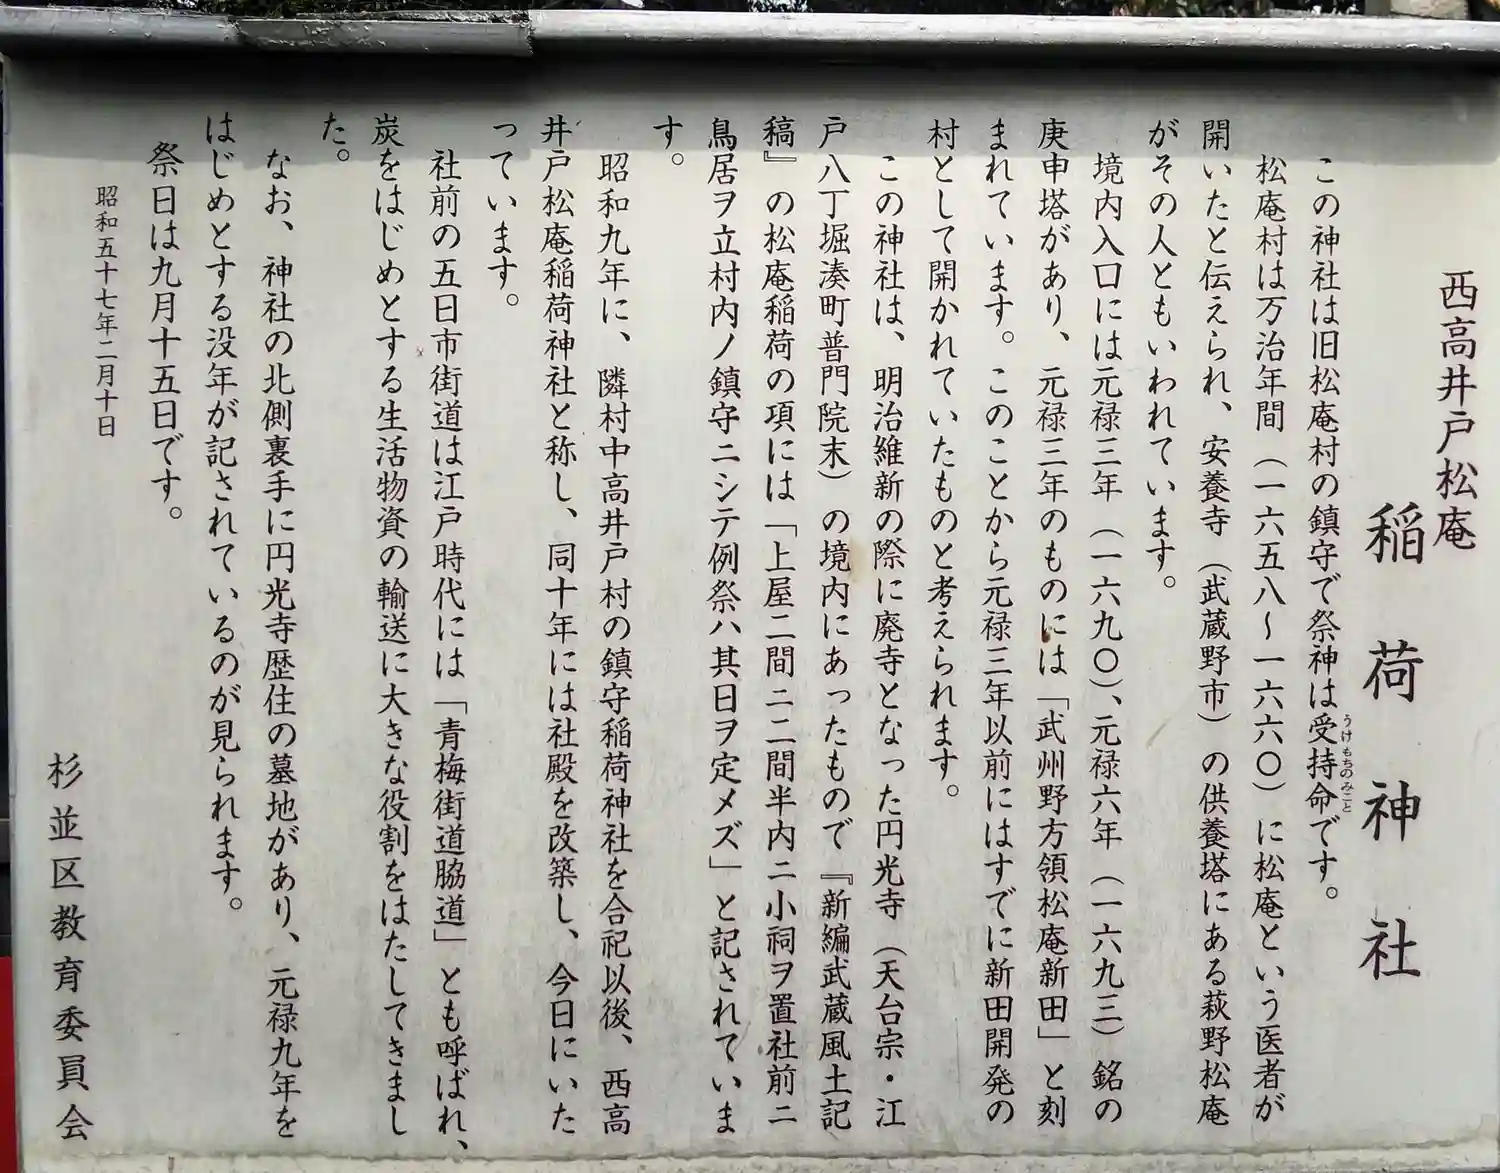 西高井戸松庵
稲荷神社
この神社は旧松庵村の鎮守で祭神は受持命です。
うけもちのみこと
松庵村は万治年間（一六五八〜一六六〇）に松庵という医者が
開いたと伝えられ、安養寺（武蔵野市）の供養塔にある萩野松庵
がその人ともいわれています。
境内入口には元禄三年（一六九〇）、元禄六年（一六九三）銘の
庚申塔があり、元禄三年のものには「武州野方領松庵新田」と刻
まれています。このことから元禄三年以前にはすでに新田開発の
村として開かれていたものと考えられます。
この神社は、明治維新の際に廃寺となった円光寺（天台宗・江
戸八丁堀湊町普門院末）の境内にあったもので『新編武蔵風土記
稿』の松庵稲荷の項には「上屋二間ニ二間半内ニ小祠ヲ置社前ニ
鳥居ヲ立村内ノ鎮守ニシテ例祭ハ其日ヲ定メズ」と記されていま
す。
昭和九年に、隣村中高井戸村の鎮守稲荷神社を合祀以後、西高
井戸松庵稲荷神社と称し、同十年には社殿を改築し、今日にいた
っています。
社前の五日市街道は江戸時代には「青梅街道脇道」とも呼ばれ、
炭をはじめとする生活物資の輸送に大きな役割をはたしてきまし
た。
なお、神社の北側裏手に円光寺歴住の墓地があり、元禄九年を
はじめとする没年が記されているのが見られます。
祭日は九月十五日です。
昭和五十七年二月十日
杉並区教育委員会